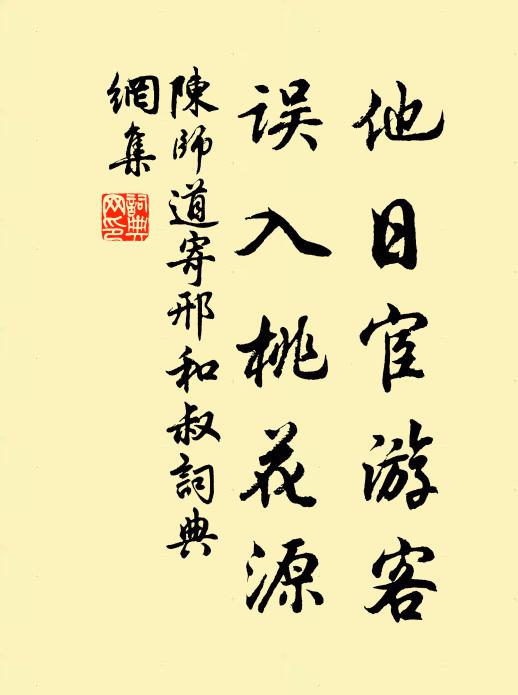 他日宦游客
误入桃花源
陳師道寄邢和叔詞典
網集
詞典
网印